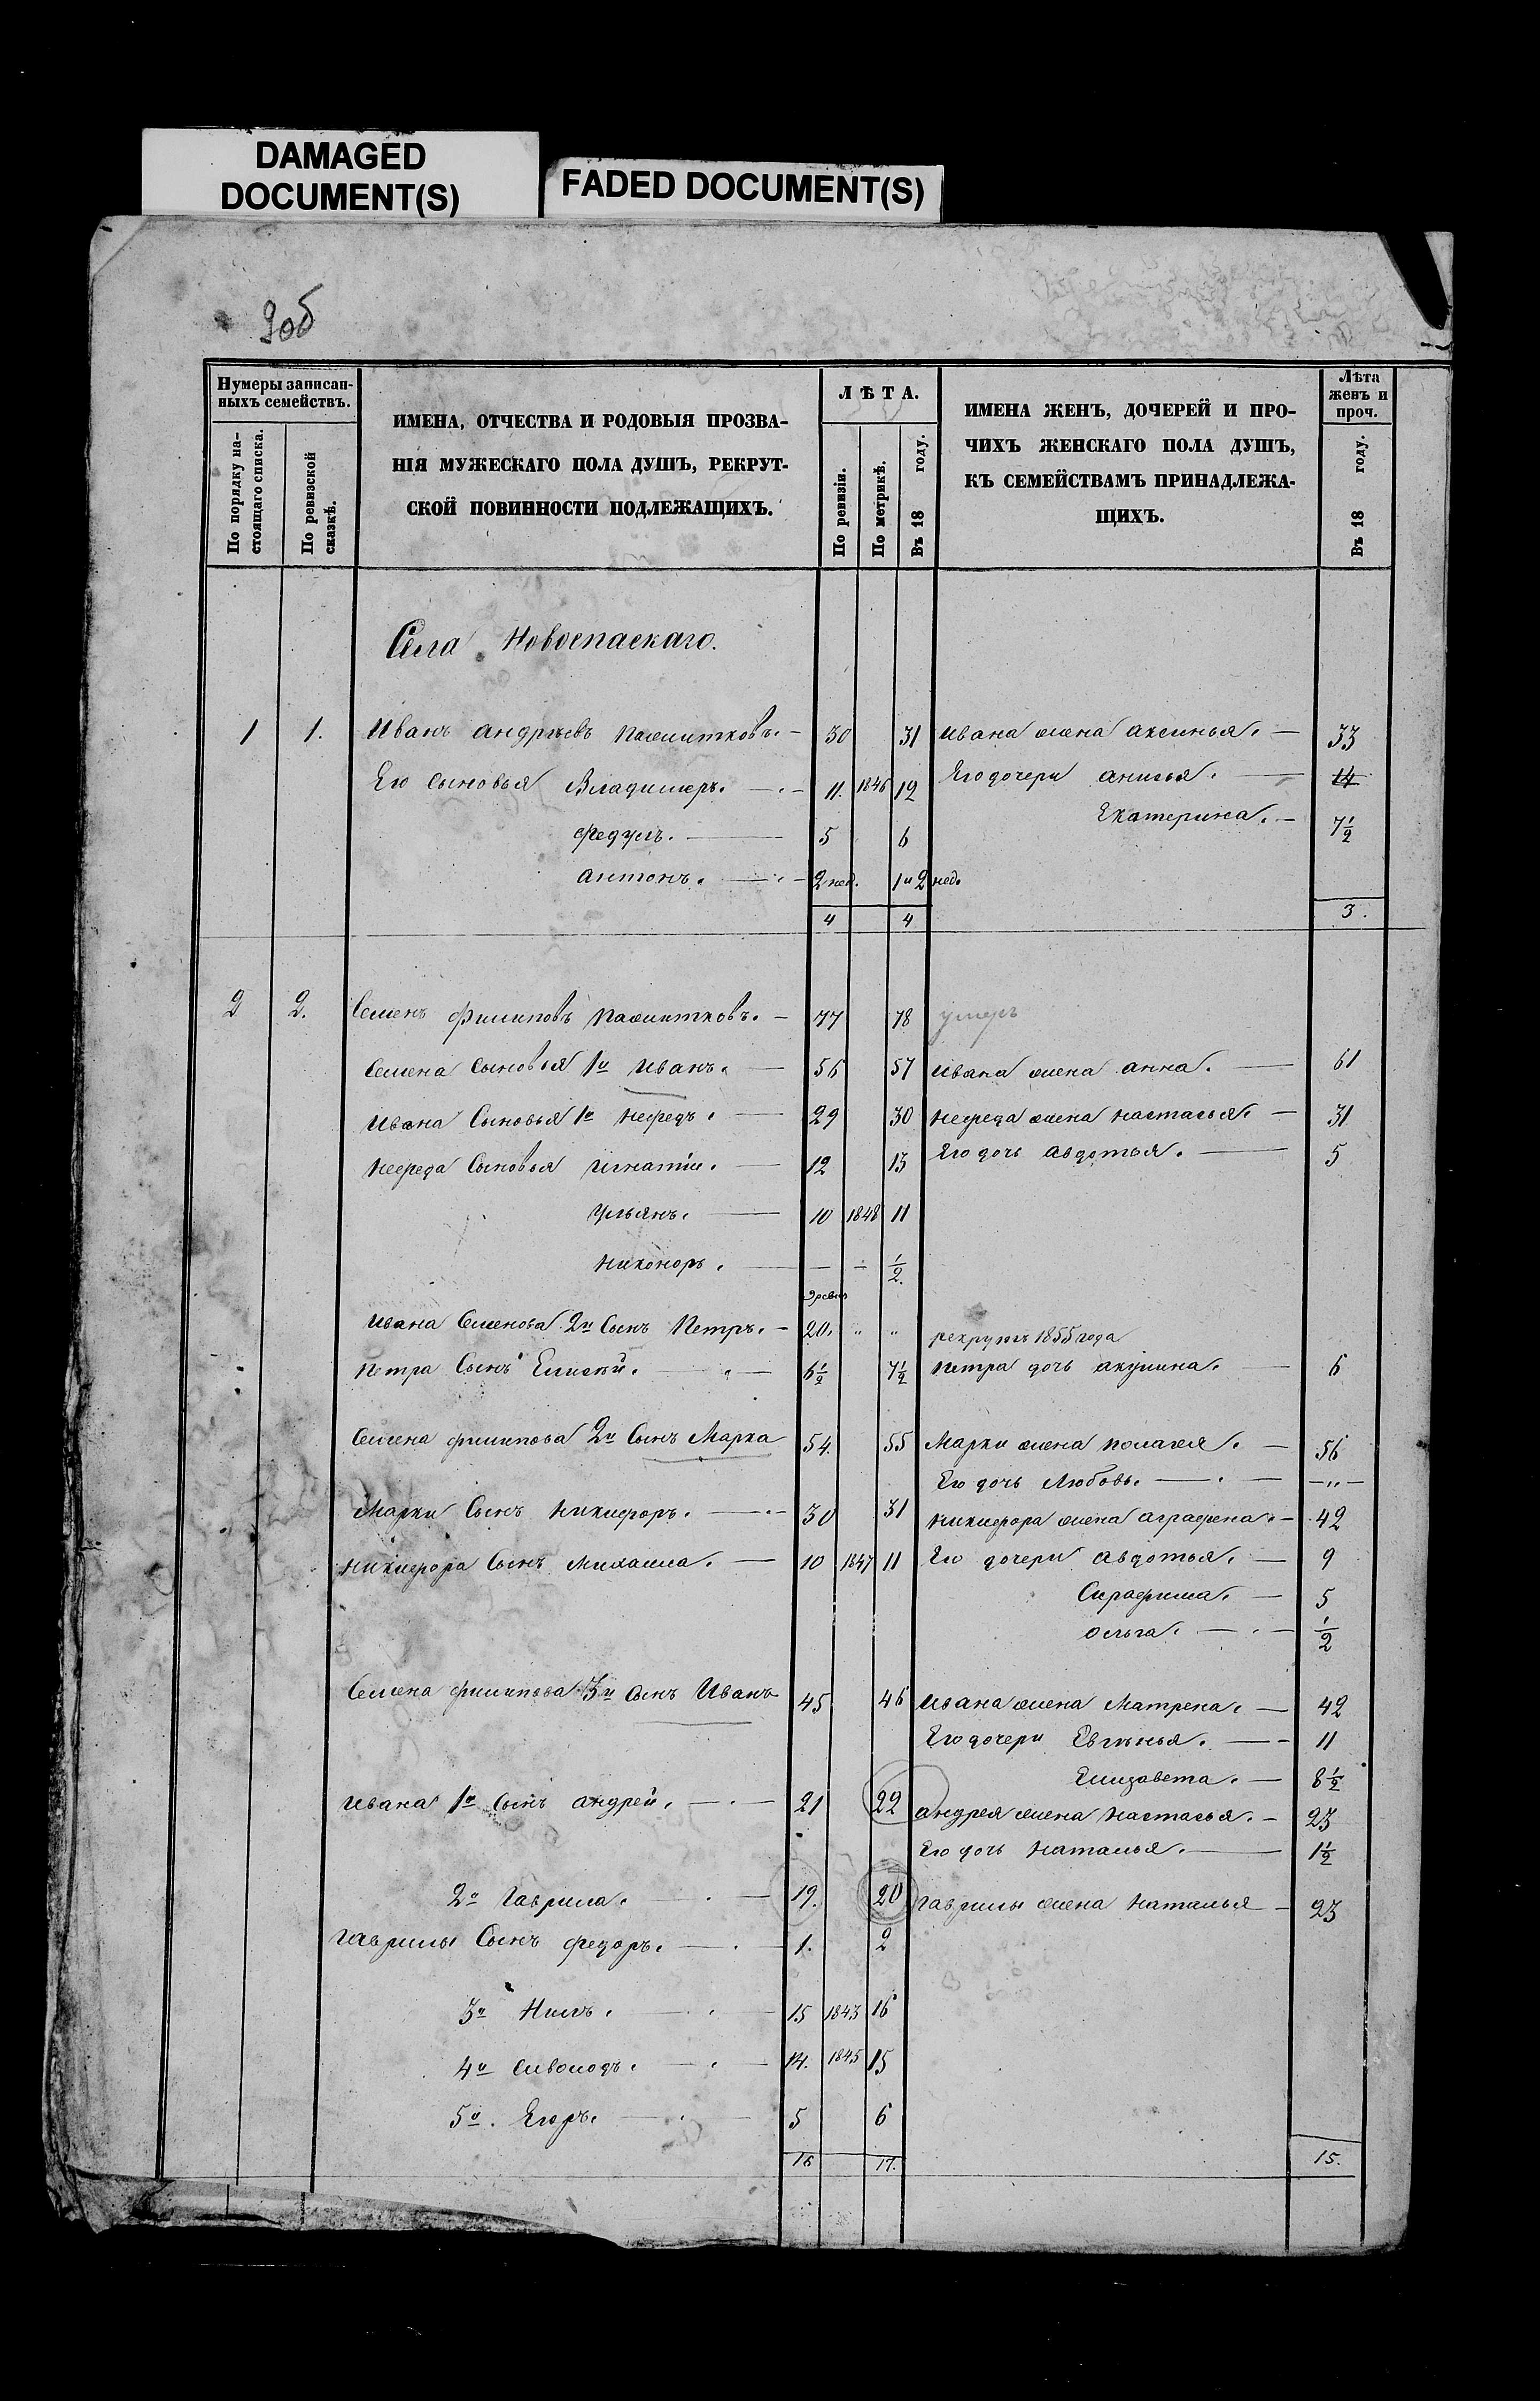 DAMAGED
DOCUMENT(S)
FADED DOCUMENT(S)
Нумеры записан-
ныхъ семействъ.
По порядку на-
стоящаго списка.
По ревизской
сказкѣ.
ИМЕНА, ОТЧЕСТВА И РОДОВЫЯ ПРОЗВА-
НІЯ МУЖЕСКАГО ПОЛА ДУШЪ, РЕКРУТ-
СКОЙ ПОВИННОСТИ ПОДЛЕЖАЩИХЪ.
ЛѢТА.
По ревизіи.
По метрикѣ.
Въ 18 году.
ИМЕНА ЖЕНЪ, ДОЧЕРЕЙ И ПРО-
ЧИХЪ ЖЕНСКАГО ПОЛА ДУШЪ,
КЪ СЕМЕЙСТВАМЪ ПРИНАДЛЕЖА-
ЩИХЪ.
Лѣта
женъ и
проч.
Въ 18 году.
Села Новоспаскаго.
1 1. Иванъ андрѣевъ 30 31 Ивана жена аксинья. 33
Его сыновья Владимеръ. 11. 1846 12 Его дочери анисья. 14
Екатерина. 7½
Федулъ. 5 6
антонъ. 2 нед. 1 и 2 нед.
4 4 3.
2 2. Семенъ филиповъ 77 78 умеръ
Семена Сыновья 1й Иванъ. 56 57 Ивана жена анна. 61
Ивана Сыновья 1й Нефедъ. 29 30 Нефеда жена Настасья. 31
Нефеда Сыновья Игнатіи. 12 13 Его дочь авдотья. 5
Ульянъ. 10 1848 11
Никоноръ. — — ½.
Ивана Семенова 2й Сынъ Петръ. 20. " " рекрутъ 1855 года
Петра Сынъ Елисѣй. 6½ 7½ Петра дочь акулина. 6
Семена филипова 2й Сынъ Марка 54. 55 Марки жена полагея. 56
Его дочь Любовь. — " —
Марки Сынъ Никифоръ. 30 31 Никифора жена аграфена. 42
Никифора Сынъ Михаила. 10 1847 11 Его дочери авдотья. 9
Сирафима. 5
ольга. ½
Семена филипова 3й сынъ Иванъ 45 46 Ивана жена Матрена. 42
Его дочери Евгѣнья. 11
Елизавета. 8½
Ивана 1й сынъ андреи. 21 22 андрея жена Настасья. 23
Его дочь Наталья. 1½
2й Гаврила. 19. 20 Гаврилы жена Наталья 23
Гаврилы Сынъ федоръ. 1. 2
3й Нилъ. 15 1843 16
4й 14. 1845 15
5й. Егоръ. 5 6
16 17. 15.